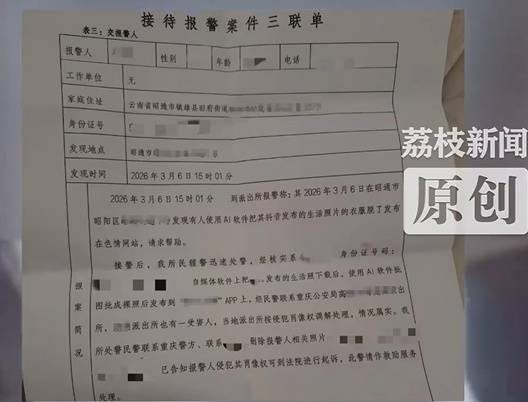 接待报警案件三联单
表三:交报警人
报警人 性别 年龄 电话
工作单位 无
家庭住址 云南省昭通市镇雄县旧府街道
身份证号
发现地点 昭通市
发现时间 2026年3月6日15时01分
荔枝新闻
原创
2026年3月6日15时01分 到派出所报警称:其2026年3月6日在昭通市
昭阳区 发现有人使用AI软件把其抖音发布的生活照片的衣服脱了发布
在色情网站,请求帮助。
接警后,我所民辅警迅速处警,经核实系 身份证号码:
自媒体软件上把 发布的生活照下载后,使用AI软件批
图批成裸照后发布到 APP上,经民警联系重庆公安局高 出
所, 派出所也有一受害人,当地派出所按侵犯肖像权调解处理,情况属实,我
所处警民警联系重庆警方、联系 删除报警人相关照片
已告知报警人侵犯其肖像权可到法院进行起诉,此警情作救助服务
处理。
报案简况